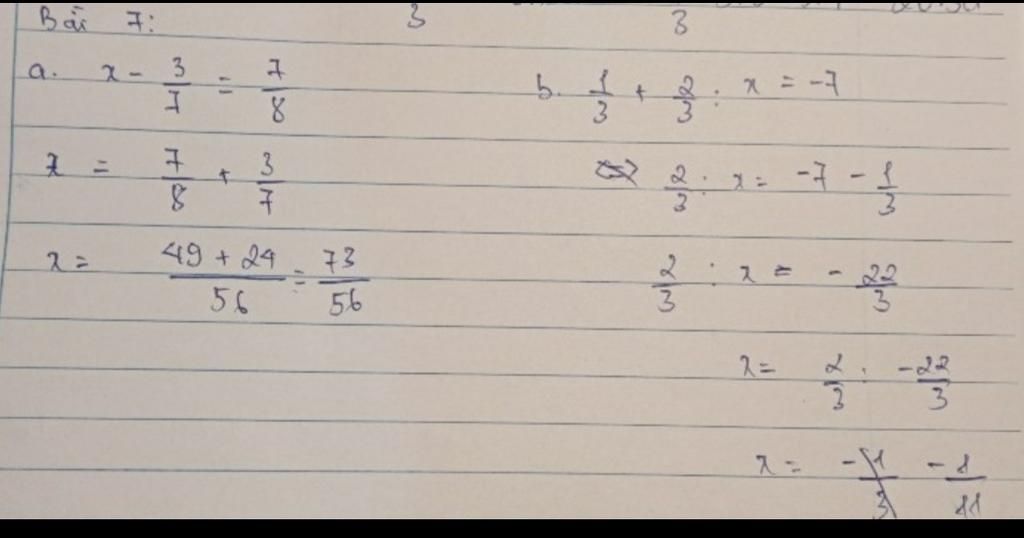 Bài 7: 3 3
a. x - 3/7 = 7/8
x = 7/8 + 3/7
x = (49 + 24)/56 = 73/56
b. 1/3 + 2/3 : x = -7
2/3 : x = -7 - 1/3
2/3 : x = - 22/3
x = 2/3 : -22/3
x = - 1/11